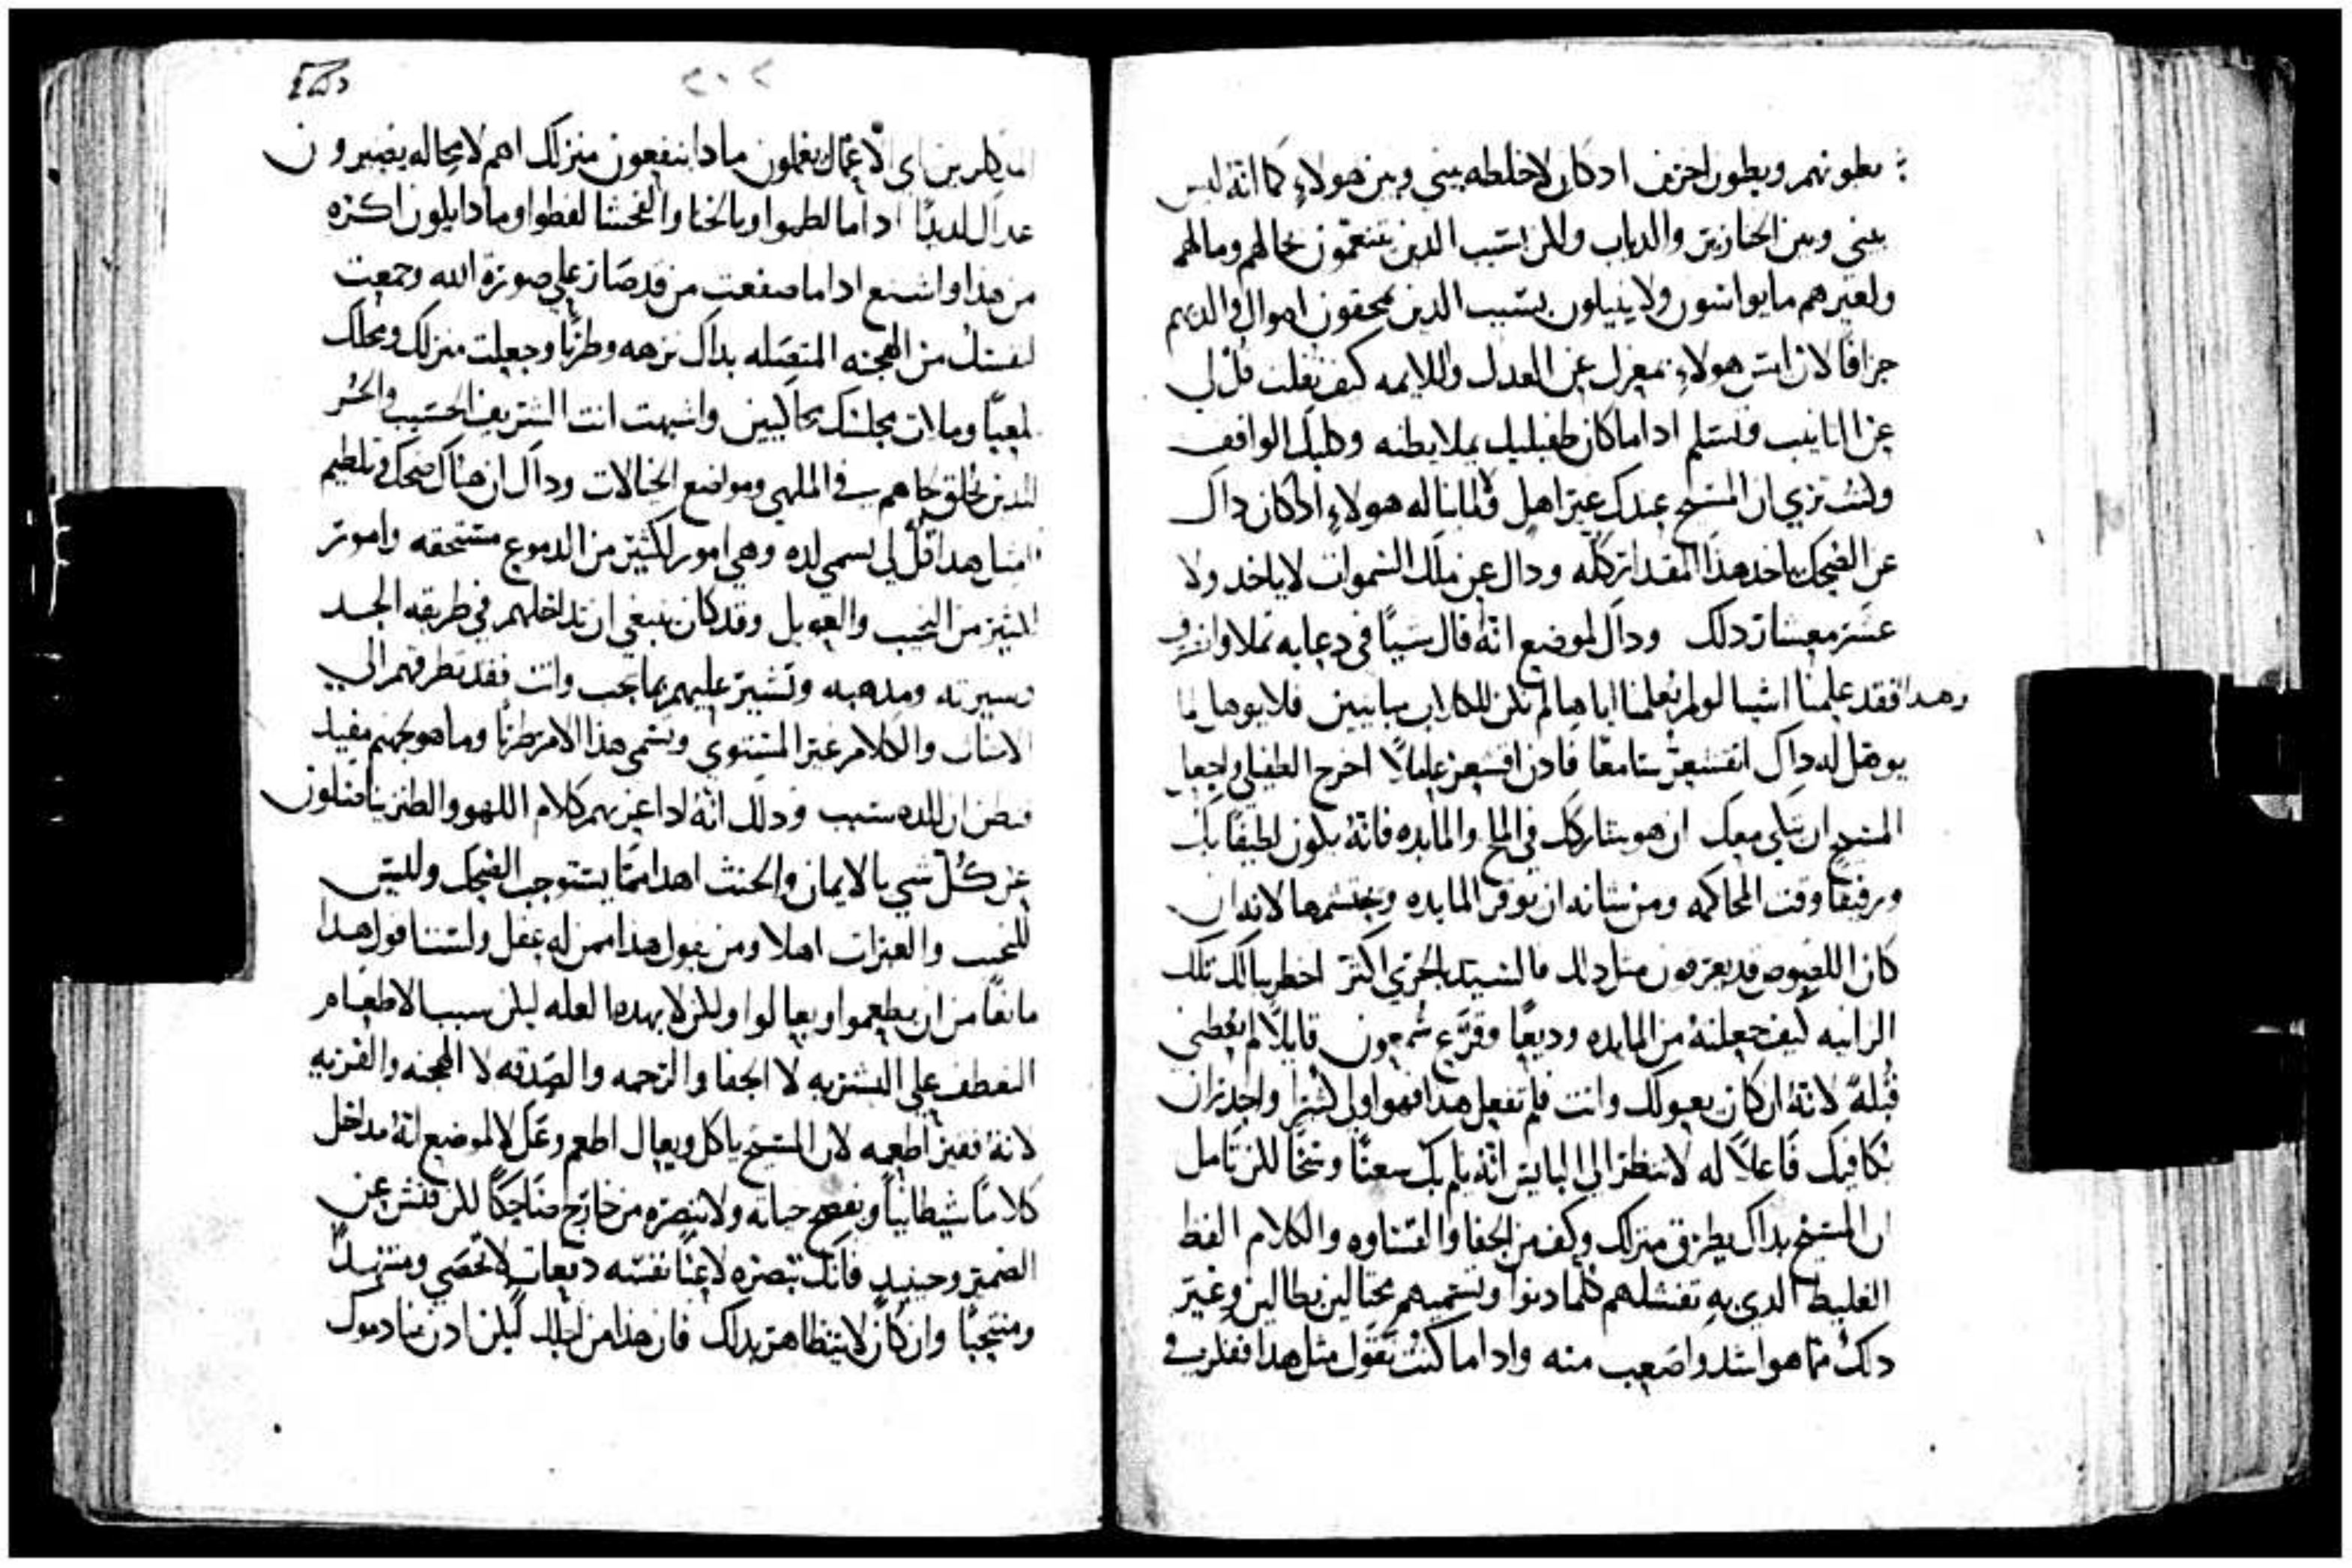 بطونهم وبطون اخرين ادكان لاخلطه بيني وبين هولاء كما انه ليس
بيني وبين الخنازير والدياب ولكن استب الدين يتنعمون بمالهم ومالهم
ولغيرهم ما يواسون ولا ينيلون بسبب الدين يمحقون اموال والديهم
جزافا لان ليس هولاء بمعزل عن العدل واللايمه كيف تفلت قل لي
عن النايب وتسلم اداما كان طفيليك يملا بطنه وكلبك الواقف
ولست تري ان المسيح عندك غير اهل ولا لما ناله هولاء ادكان داك
عن الضحك ياخد هدا المقدار كله ودال عن ملك السموات لاياخد ولا
عشر معشار دلك ودال لموضع انه قال شيا في دعابه تملا وانصرف
وهدا فقد علمنا اشيا لولم نعلمنا اياها لم تكن للكلاب
يوهل له داك اتقشعر سامعا فادن اقشعر عاملا اخرج الطفيلي واجعل
المسيح ان يتكي معك ان هو شاركك في الملح والمايده فانه يكون لطيفا بك
ورفيقا وقت المحاكمه ومن شانه ان يوقر المايده ويحتشمها لانه ان
كان اللصوص قد يعرفون مثل دلك فالسيد الحري اكثر اخطر ببالك تلك
الزانيه كيف جعلته من المايده وديعا وقرع شمعون قايلا لم تعطني
قبلة لانه ان كان يعولك وانت فلم تفعل هدا فهو اولي كثيرا واجدر ان
يكافيك فاعلا له لا تنظر الي البايس انه ياتيك شعثا وسخا لكن تامل
ان المسيح بداك يطرق منزلك وكف من الجفا والقساوه والكلام الفظ
الغليظ الدي به تفشلهم كلما دنوا وتسميهم محتالين بطالين وغير
دلك مما هو اشد واصعب منه واداما كنت تقول مثل هدا ففكر في
اي الاعمال يعملون مادا ينفعون منزلك اهم لا محاله يصيرون
غداك لديدا اداما لطموا وبالخنا والفحشا لفظوا ومادا يكون اكره
من هدا واشنع اداما صفعت من قد صار علي صورة الله وجمعت
لنفسك من الهجنه المتصله بداك نزهه وطربا وجعلت منزلك ومحلك
ملعبا وملات مجلسك محاكيين واشبهت انت الشريف الحسيب والحر
الدين تحلق لحاهم في الملهي ومواضع الخيالات ودال ان هناك ضحك وتلطيم
امثل هدا قل لي تسمي لده وهي امور لكثير من الدموع مستحقه وامور
لكثير من النحيب والعويل وقد كان ينبغي ان تداخلهم في طريقه الجد
وسيرته ومدهبه وتشير عليهم بما يجب وانت فقد تطرقهم الي
الاسباب والكلام غير المستوي وتسمي هدا الامر طربا وما هو لجهنم مفيد
فتظن ان للده سبب ودلك انه اداعزبهم كلام اللهو والطنز يناضلون
عن كل شي بالايمان والحنث اهدا مما يستوجب الضحك وليس
للنحيب والعبرات اهلا ومن يقول هدا ممن له عقل ولستنا قول هدا
مانعا من ان يطعموا ويعالوا ولكن لا بهده العله ليكن سبب الاطعام
التعطف علي البشريه لا الجفا والرحمه والصدقه لا الهجنه والفريه
لانه فقير اطعمه لان المسيح ياكل ويعال اطعم وعل لا لموضع انه مداخل
كلاما شيطانيا ويفضح حياته ولا تبصره من خارج ضاحكا لكن فتش عن
الضمير وحينيد فانك تبصره لاعنا نفسه دفعات لا تحصي ومتنهدا
ومنتحبا وان كان لا يتظاهر بداك فان هدا من اجلك ليكن ادن منادموك